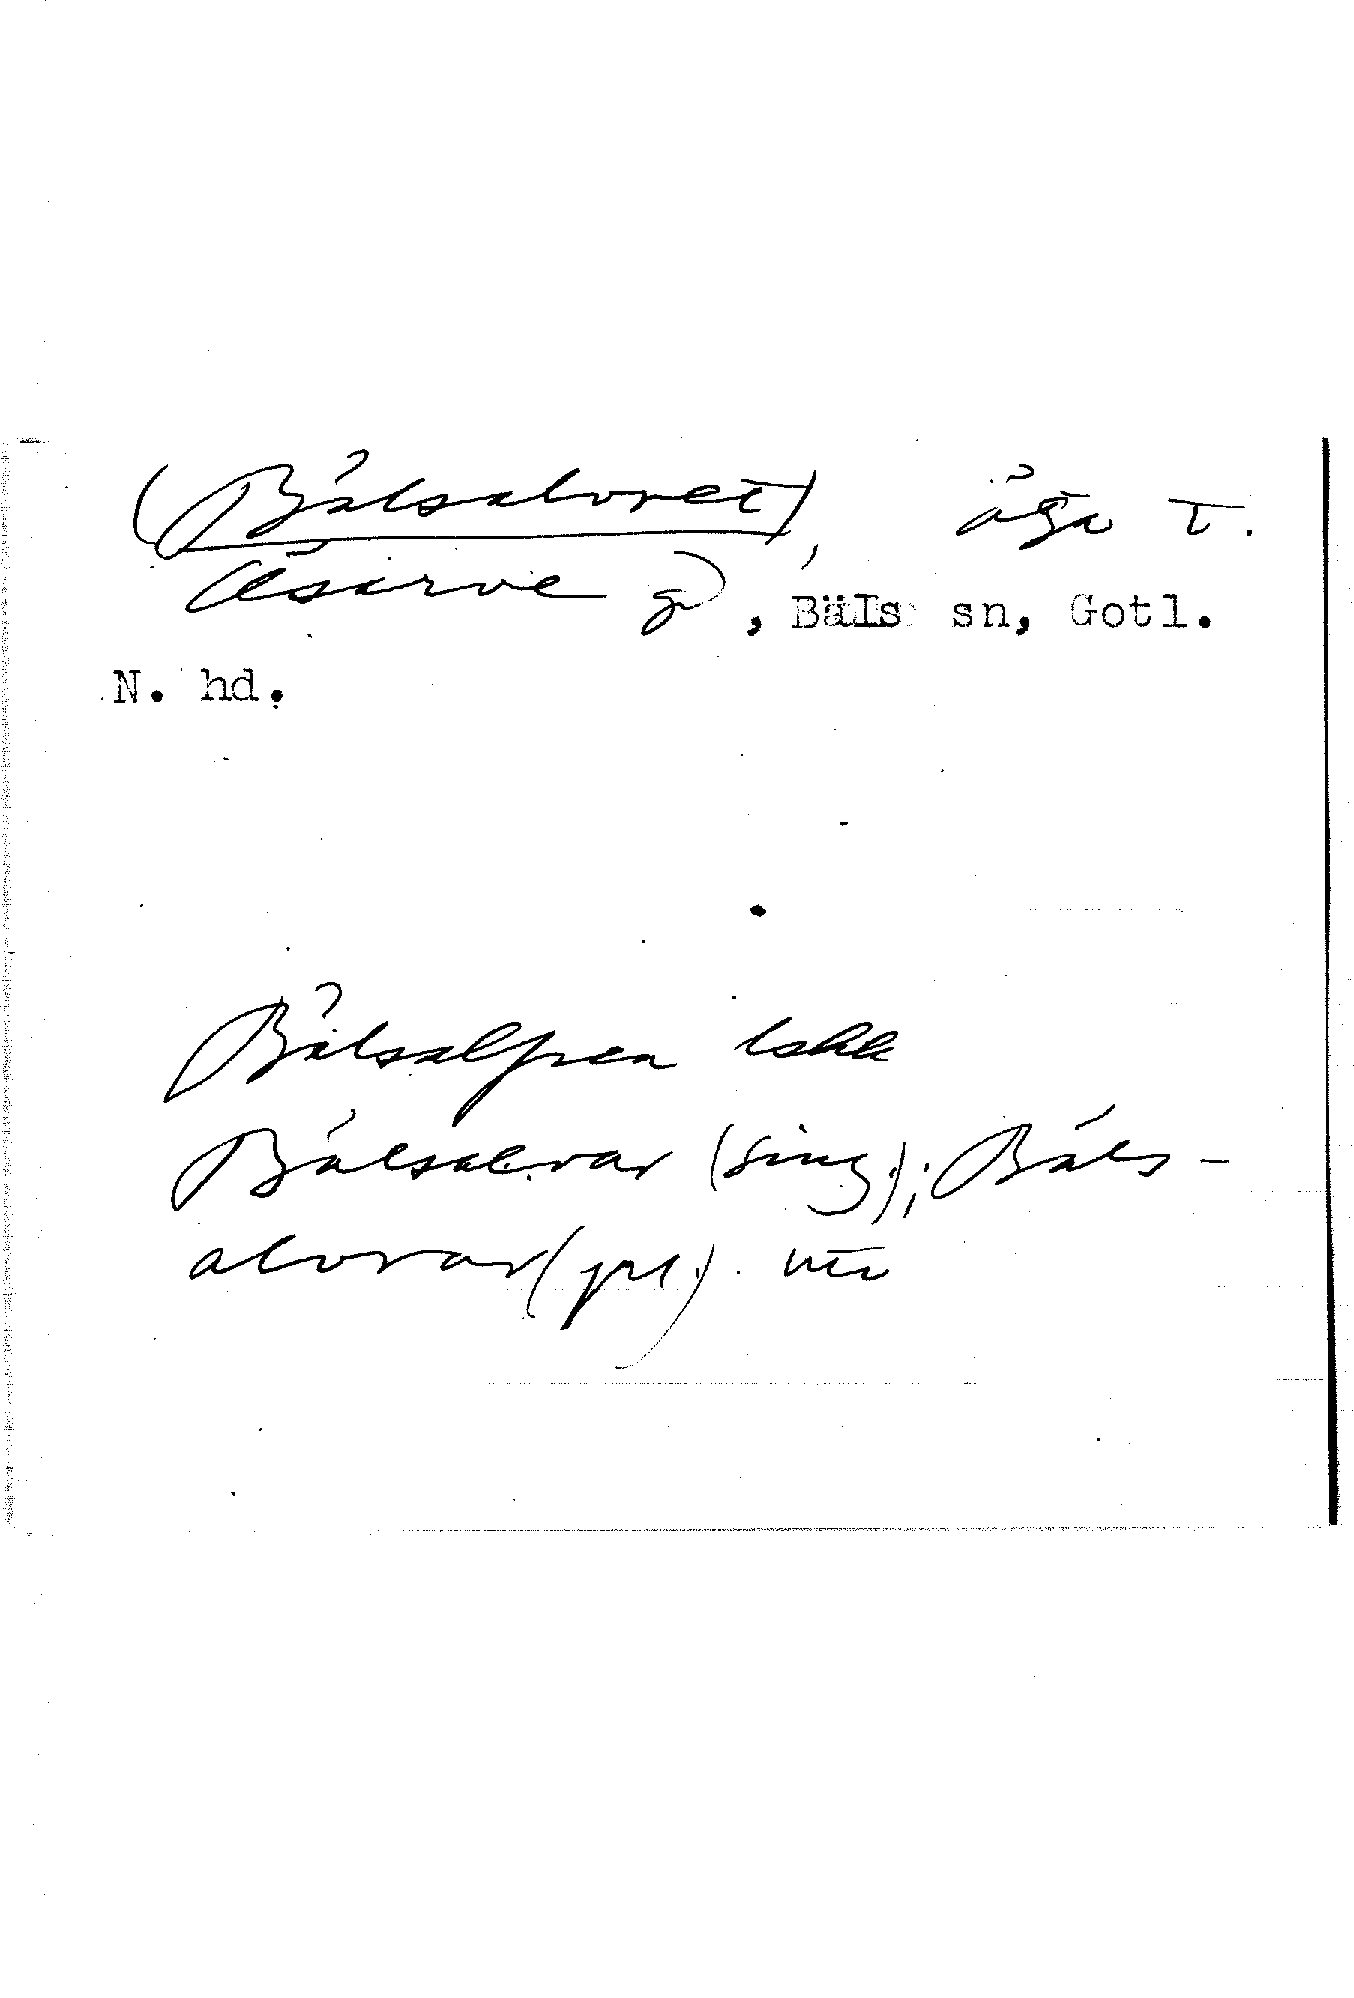 (Bålsalvret), åga t.
Åsarve gd, Bäls sn, Gotl.
N. hd.
Bålsalpren lskk
Bålsalvar (sing.); Båls-
alvrar (pl.). uta